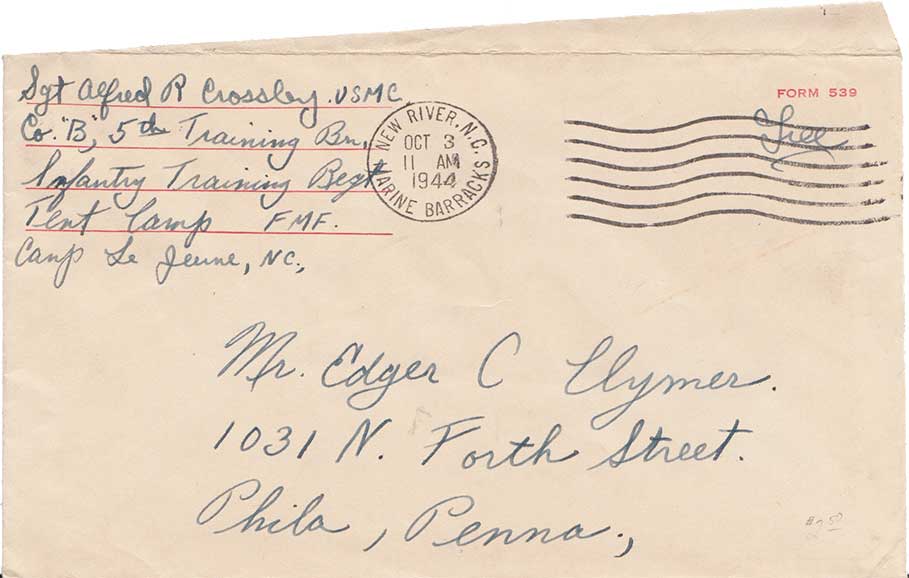 Sgt Alfred R Crossley. USMC
Co. "B", 5th Training Bn.
Infantry Training Regt
Tent Camp FMF.
Camp Le Jeune, NC.,
NEW RIVER, N.C.
OCT 3
11 AM
1944
MARINE BARRACKS
FORM 539
Free
Mr. Edger C Clymer.
1031 N. Forth Street.
Phila, Penna.,